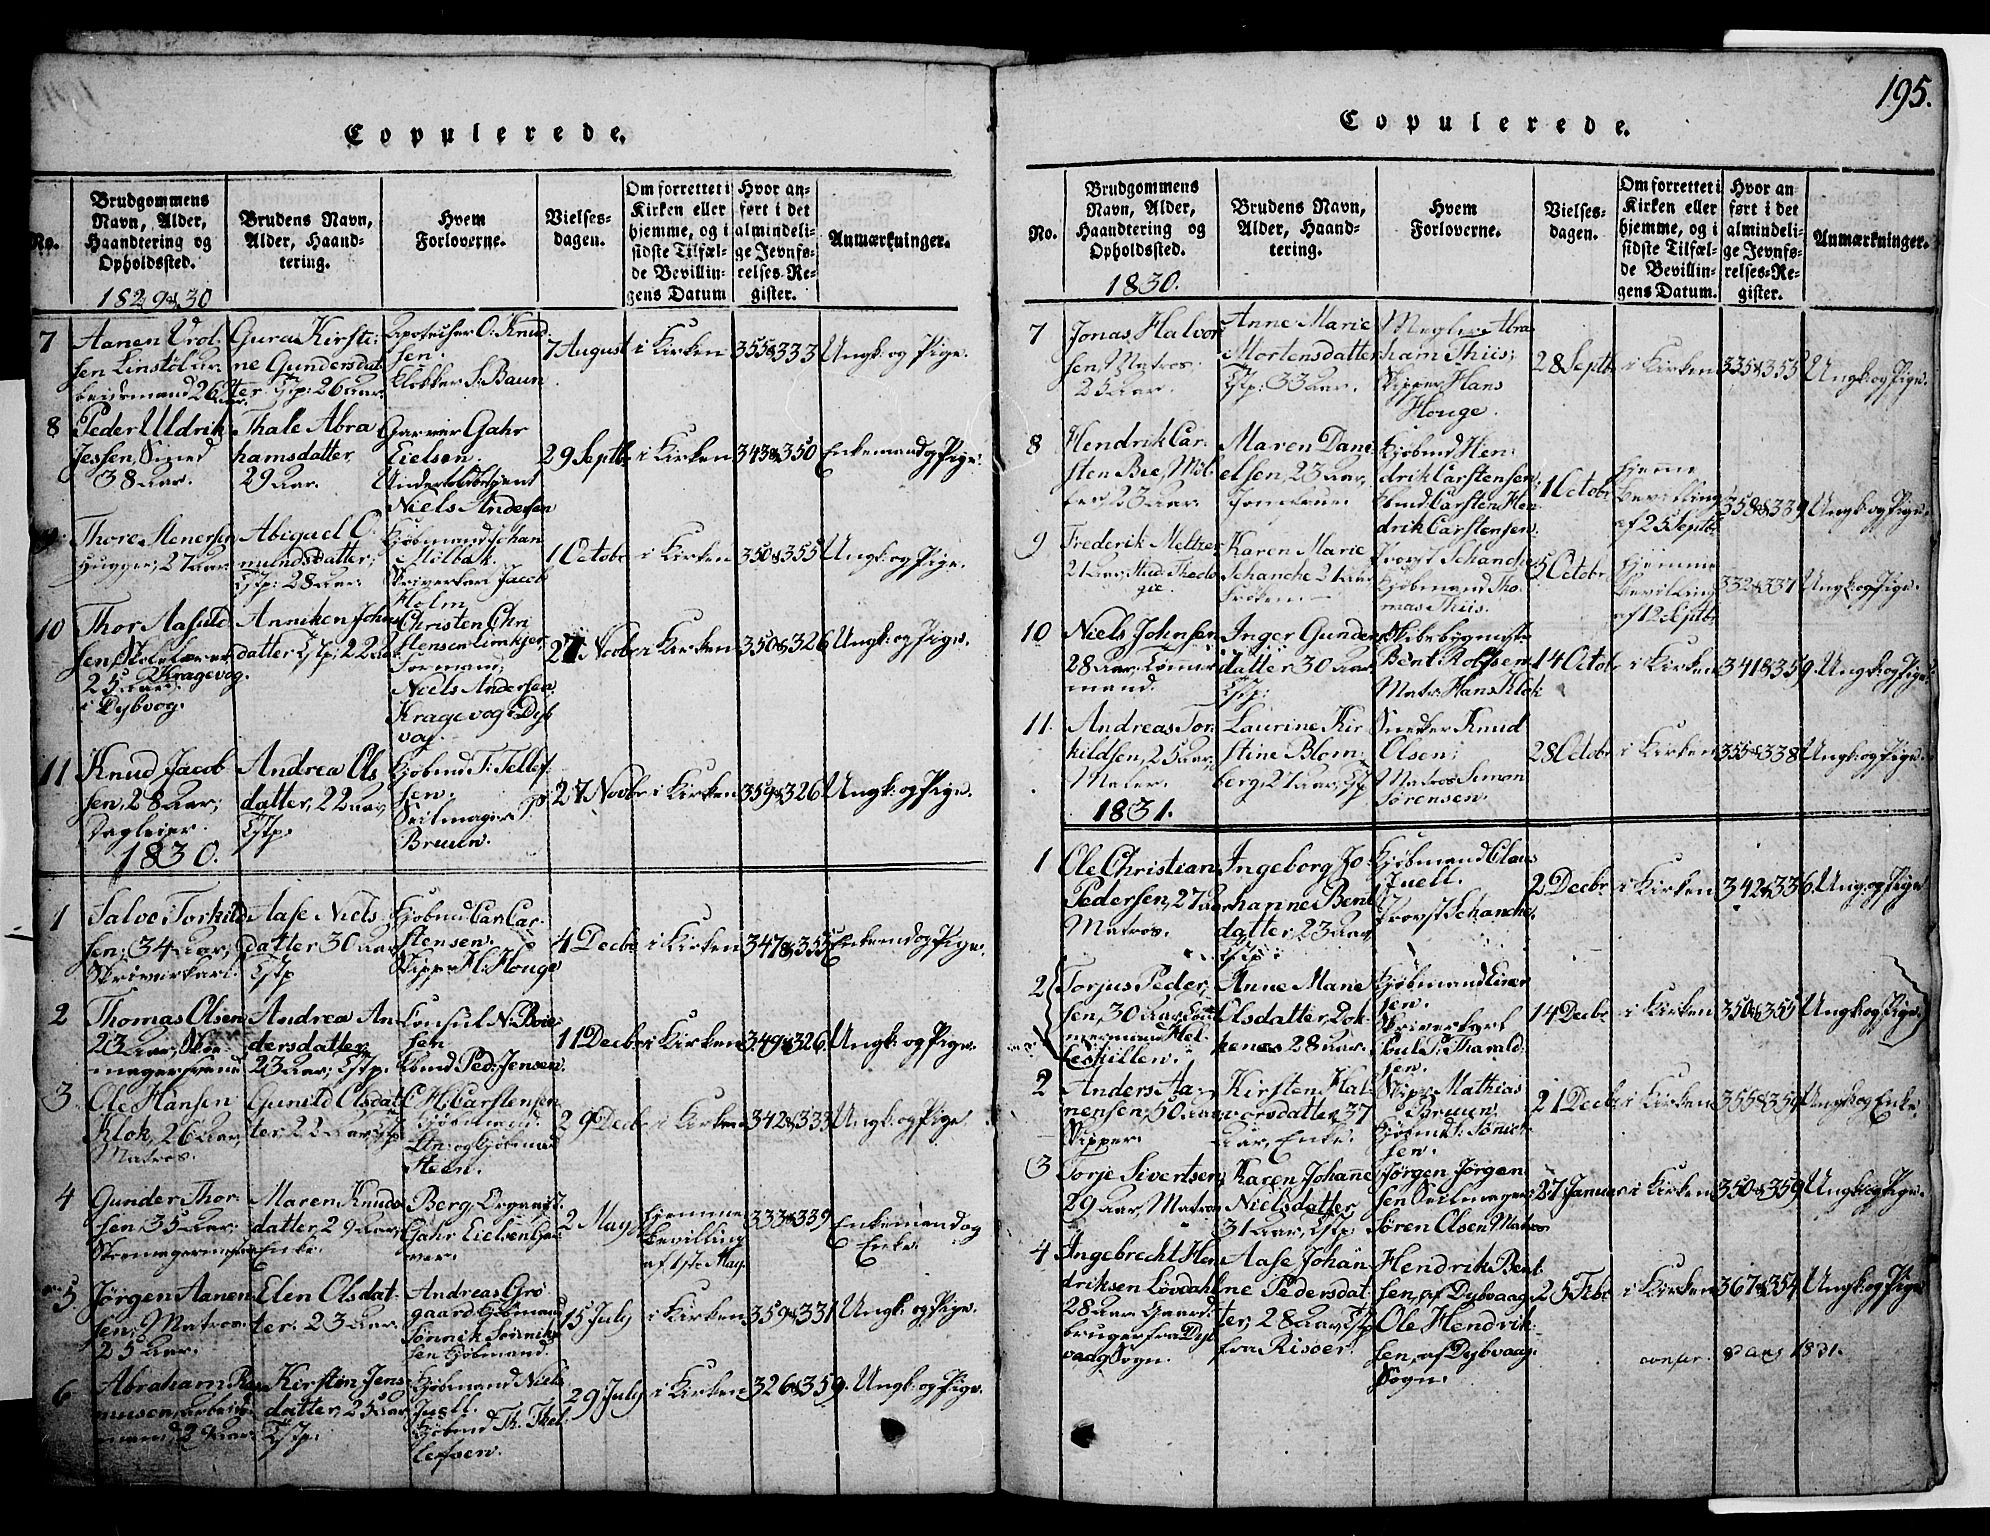 Copulerede.
No.
Brudgommens
Navn, Alder,
Haandtering og
Opholdssted.
1829 & 30
Brudens Navn,
Alder, Haand-
tering.
Hvem
Forloverne.
Vielses-
dagen.
Om forrettet i
Kirken eller
hjemme, og i
sidste Tilfæl-
de Bevillin-
gens Datum
Hvor an-
ført i det
almindeli-
ge Jevnfø-
relses-Re-
gister.
Anmærkninger.
7
Aanen Urol-
sen Linstöl ar-
beidsmand 26 Aar.
Guro Kirsti-
ne Gundersdat-
ter Tjstp: 26 Aar.
O: Knud-
sen.
Klokker S: Baun
7 August
i Kirken
355 & 333
Ungk: og Pige.
8
Peder Uldrik
Jessen, Smed
38 Aar.
Thale Abra
hamsdatter
29 Aar.
Garver Gahr
Eielsen.
Niels Andersen
29 Septbr
i Kirken
343 & 350
Enkemand og Pige.
Thore Menersen
Hugger, 27 Aar
Abigael O-
mundsdatter,
Tjstp: 28 Aar.
Kjöbmand Johan
Milbak.
Skriverkarl Jacob
Holm
1 Octobr
i Kirken
350 & 355
Ungk: og Pige.
10
Thor Aasuld
sen, Skolelærer
25 Aar. Kragevog.
i Dybvog.
Anniken Johns
datter Tjstp, 22 Aar
Christen Chri
stensen
Formand,
Niels Andersen
Kragevog i Dyb
vog.
27 Novbr
i Kirken
350 & 326
Ungk: og Pige.
11
Knud Jacob
sen, 28 Aar;
Dagleier.
Andrea Ols
datter, 22 Aar,
Tjstp.
Kjöbmd T: Tellef-
sen.
Seilmager P
Bruun.
27 Novbr
i Kirken
359 & 326
Ungk: og Pige.
1830.
1
Salve Torkild
sen; 34 Aar,
Skriverkarl.
Aase Niels
datter 30 Aar
Tjstp
Kjöbmd Car Car-
stensen.
Skipper H: Houge
4 Decbr
i Kirken
347 & 355
Enkemd og Pige.
2
Thomas Olsen
23 Aar, Skoe-
magersvend
Andrea An
dersdatter
23 Aar; Tjstp.
Consul N: Boie
sen
Kbmd Ped: Jensen.
11 Decbr
i Kirken
349 & 326
Ungk: og Pige.
3
Ole Hansen
Klok, 26 Aar,
Matros.
Gunild Olsdat
ter 22 Aar Tjstp
C H: Carstensen
Kjöbmand.
Kjöbmand
Steen.
29 Decbr
i Kirken
342 & 333
Ungk: og Pige
4
Gunder Thor-
sen 35 Aar;
Skomagermester
Maren Knuds
datter, 29 Aar,
Enke.
Berg, Organist.
Gahr Eielsen Gar
ver.
2 May
hjemme
Bevilling
af 1ste May.
333 & 339
Enkemand og
Enke.
5
Jörgen Aanen
sen, Matros.
25 Aar.
Elen Olsdat-
ter. 23 Aar.
Andreas Grö
gaard Kjöbmand
Sönnik
sen Kjöbmand.
15 July
i Kirken
359 & 331
Ungk: og Pige.
6
Abraham Ras
musen, arbeids-
mand, 29 Aar.
Kirsten Jens
datter, 25 Aar
Tjstp.
Kjöbmand Niels
Juell.
Kjöbmd Th. Thel
lefsen.
29 July
i Kirken
326 & 359.
Ungk: og Pige.
195.
Copulerede.
No.
Brudgommens
Navn, Alder,
Haandtering og
Opholdssted.
1830.
Brudens Navn,
Alder, Haand-
tering.
Hvem
Forloverne.
Vielses-
dagen.
Om forrettet i
Kirken eller
hjemme, og i
sidste Tilfæl-
de Bevillin-
gens Datum.
Hvor an-
ført i det
almindeli-
ge Jevnfø-
relses-Re-
gister.
Anmærkninger.
7
Jonas Halvor
sen, Matros.
25 Aar.
Anne Marie
Mortensdatter
Tjstp: 33 Aar.
Megler Abra
ham Thiis,
Skipper Hans
Houge.
28 Septbr
i Kirken
335 & 353
Ungk: og Pige.
8
Hendrik Car-
sten Bee, Möl-
ler, 23 Aar.
Maren Dani
elsen, 23 Aar,
Jomfrue.
Kjöbmd Hen-
drik Carstensen
Kbmd Carsten Hen
drik Carstensen.
1 Octobr
hjeme
Bevilling
af 25 Septbr
358 & 339
Ungk: og Pige.
9
Frederik Meltzer
21 Aar, Stud: Theolo
gie.
Karen Marie
Schanche 21 Aar
Fröken.
Provst Schanche
Kjöbmand Tho-
mas Thiis.
5 Octobr
hjemme
Bevilling
af 12 Septbr
332 & 337
Ungk: og Pige.
10
Niels Johnsen
28 Aar, Tömmer
mand.
Inger Gunders
datter 30 Aar.
Tjstp:
Skibsbygmester
Bent Rolfsen
Matr: Hans Klok
14 Octob
i Kirken
341 & 359
Ungk: og Pige.
11.
Andreas Tor-
kildsen, 25 Aar,
Maler.
Laurine Kir
stine Blom-
berg, 21 Aar, Tjstp
Snedker Knud
Olsen;
Matros Simon
Sörensen.
28 Octobr
i Kirken
355 & 338
Ungk: og Pige.
1831.
1
Ole Christian
Pedersen, 27 Aar
Matros.
Ingeborg Jo-
hanne Bent
datter, 23 Aar,
Tjstp:
Kjöbmand Claus
Juell.
Provst Schanche.
2 Decbr
i Kirken
342 & 336
Ungk: og Pige
2
Torjus Peder-
sen, 30 Aar, Töm-
mermand Hel-
leskillen.
Anne Marie
Olsdatter, Kok-
kenes 28 Aar.
Kjöbmand Einer
sen.
Skriverkarl
Poul P: Tharald-
sen.
14 Decbr
i Kirken
350 & 355
Ungk: og Pige
2
Anders Aa-
nensen, 50 Aar
Skipper.
Kirsten Hal-
vorsdatter, 37
Aar, Enke.
Skipp: Mathias
Bruun;
Kjöbmd S: Sönich
sen.
21 Decbr
i Kirken
355 & 354
Ungk: og Enke
3
Torje Sivertsen
29 Aar, Matros
Karen Johañe
Nielsdatter,
31 Aar, Tjstp.
Jörgen Jörgen
sen Seilmager
Sören Olsen Matros
27 Januar
i Kirken
350 & 359
Ungk: og Pige.
4
Ingebrecht Hen
driksen Lövdahl
28 Aar Gaard
bruger fra Dyb
vaag Sogn.
Aase Johan-
ne Pedersdat
ter, 28 Aar, Tjstp
fra Risöer.
Hendrik Bent
sen, af Dybvaag
Ole Hendrik-
sen, af Dybvaag
Sogn.
25 Febr
i Kirken
367 & 354
Ungk: og Pige
8 Aug 1831.